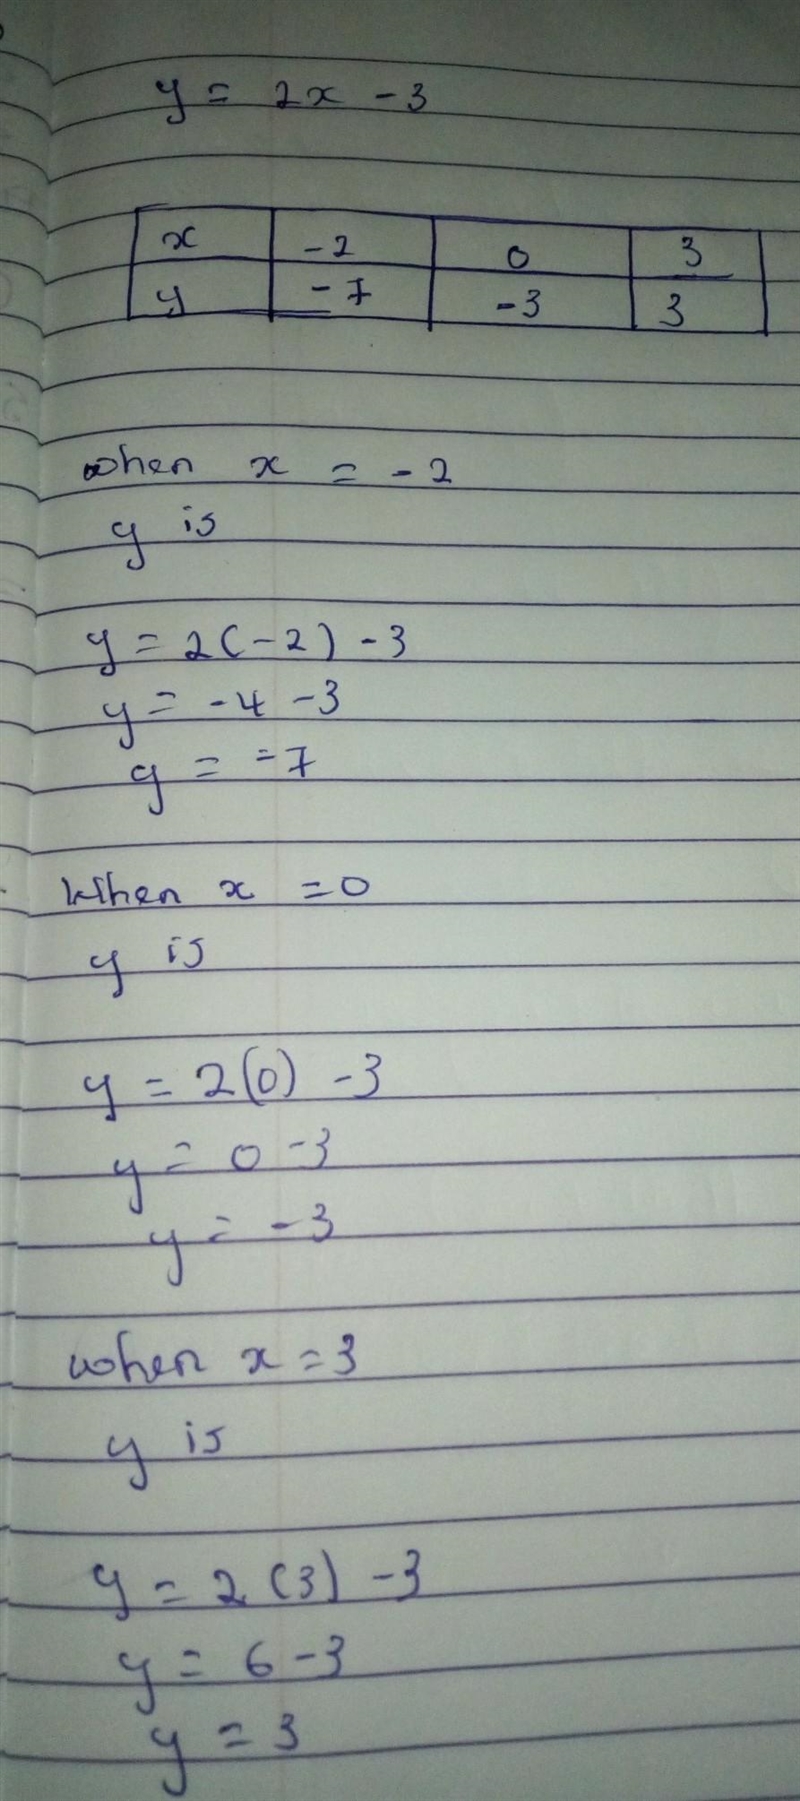 y = 2x - 3
x -2 0 3
y -7 -3 3
when x = -2
y is
y = 2(-2) - 3
y = -4 - 3
y = -7
When x = 0
y is
y = 2(0) - 3
y = 0 - 3
y = -3
when x = 3
y is
y = 2(3) - 3
y = 6 - 3
y = 3